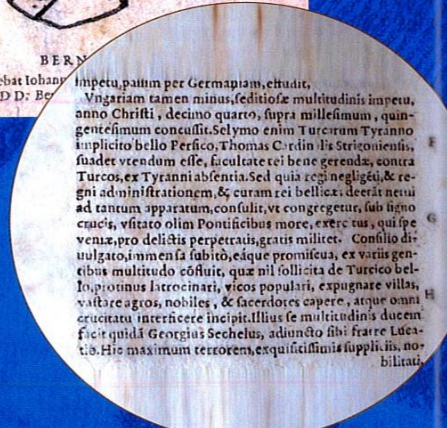 BERN
ebat Iohann
D D: Be
impetu, passim per Germaniam, effudit,
Vngariam tamen minus, seditiosæ multitudinis impetu,
anno Christi, decimo quarto, supra millesimum, quin-
gentesimum concussit. Selymo enim Turcarum Tyranno
implicito bello Persico, Thomas Cardin lis Strigoniensis,
suadet vtendum esse, facultate rei bene gerendæ, contra
Turcos, ex Tyranni absentia. Sed quia regi negligēti, & re-
gni administrationem, & curam rei bellicæ: deerāt nerui
ad tantum apparatum, consulit, vt congregetur, sub signo
crucis, vsitato olim Pontificibus more, exerc tus, qui spe
veniæ, pro delictis perpetratis, gratis militet. Consilio di-
uulgato, immensa subitò, eáque promiscua, ex varijs gen-
tibus multitudo cōfluit, quæ nil sollicita de Turcico bel-
lo, protinus latrocinari, vicos populari, expugnare villas,
vastare agros, nobiles, & sacerdotes capere, atque omni
crucitatu interficere incipit. Illius se multitudinis ducem
facit quidā Georgius Sechelus, adiuncto sibi fratre Luca-
tio. Hic maximum terrorem, exquisitissimis supplicijs, no-
bilitati,
F
G
H